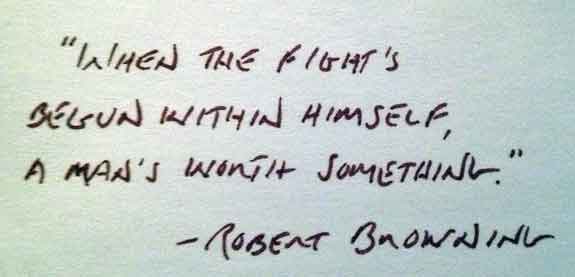 "WHEN THE FIGHT'S
BEGUN WITHIN HIMSELF,
A MAN'S WORTH SOMETHING."
-ROBERT BROWNING